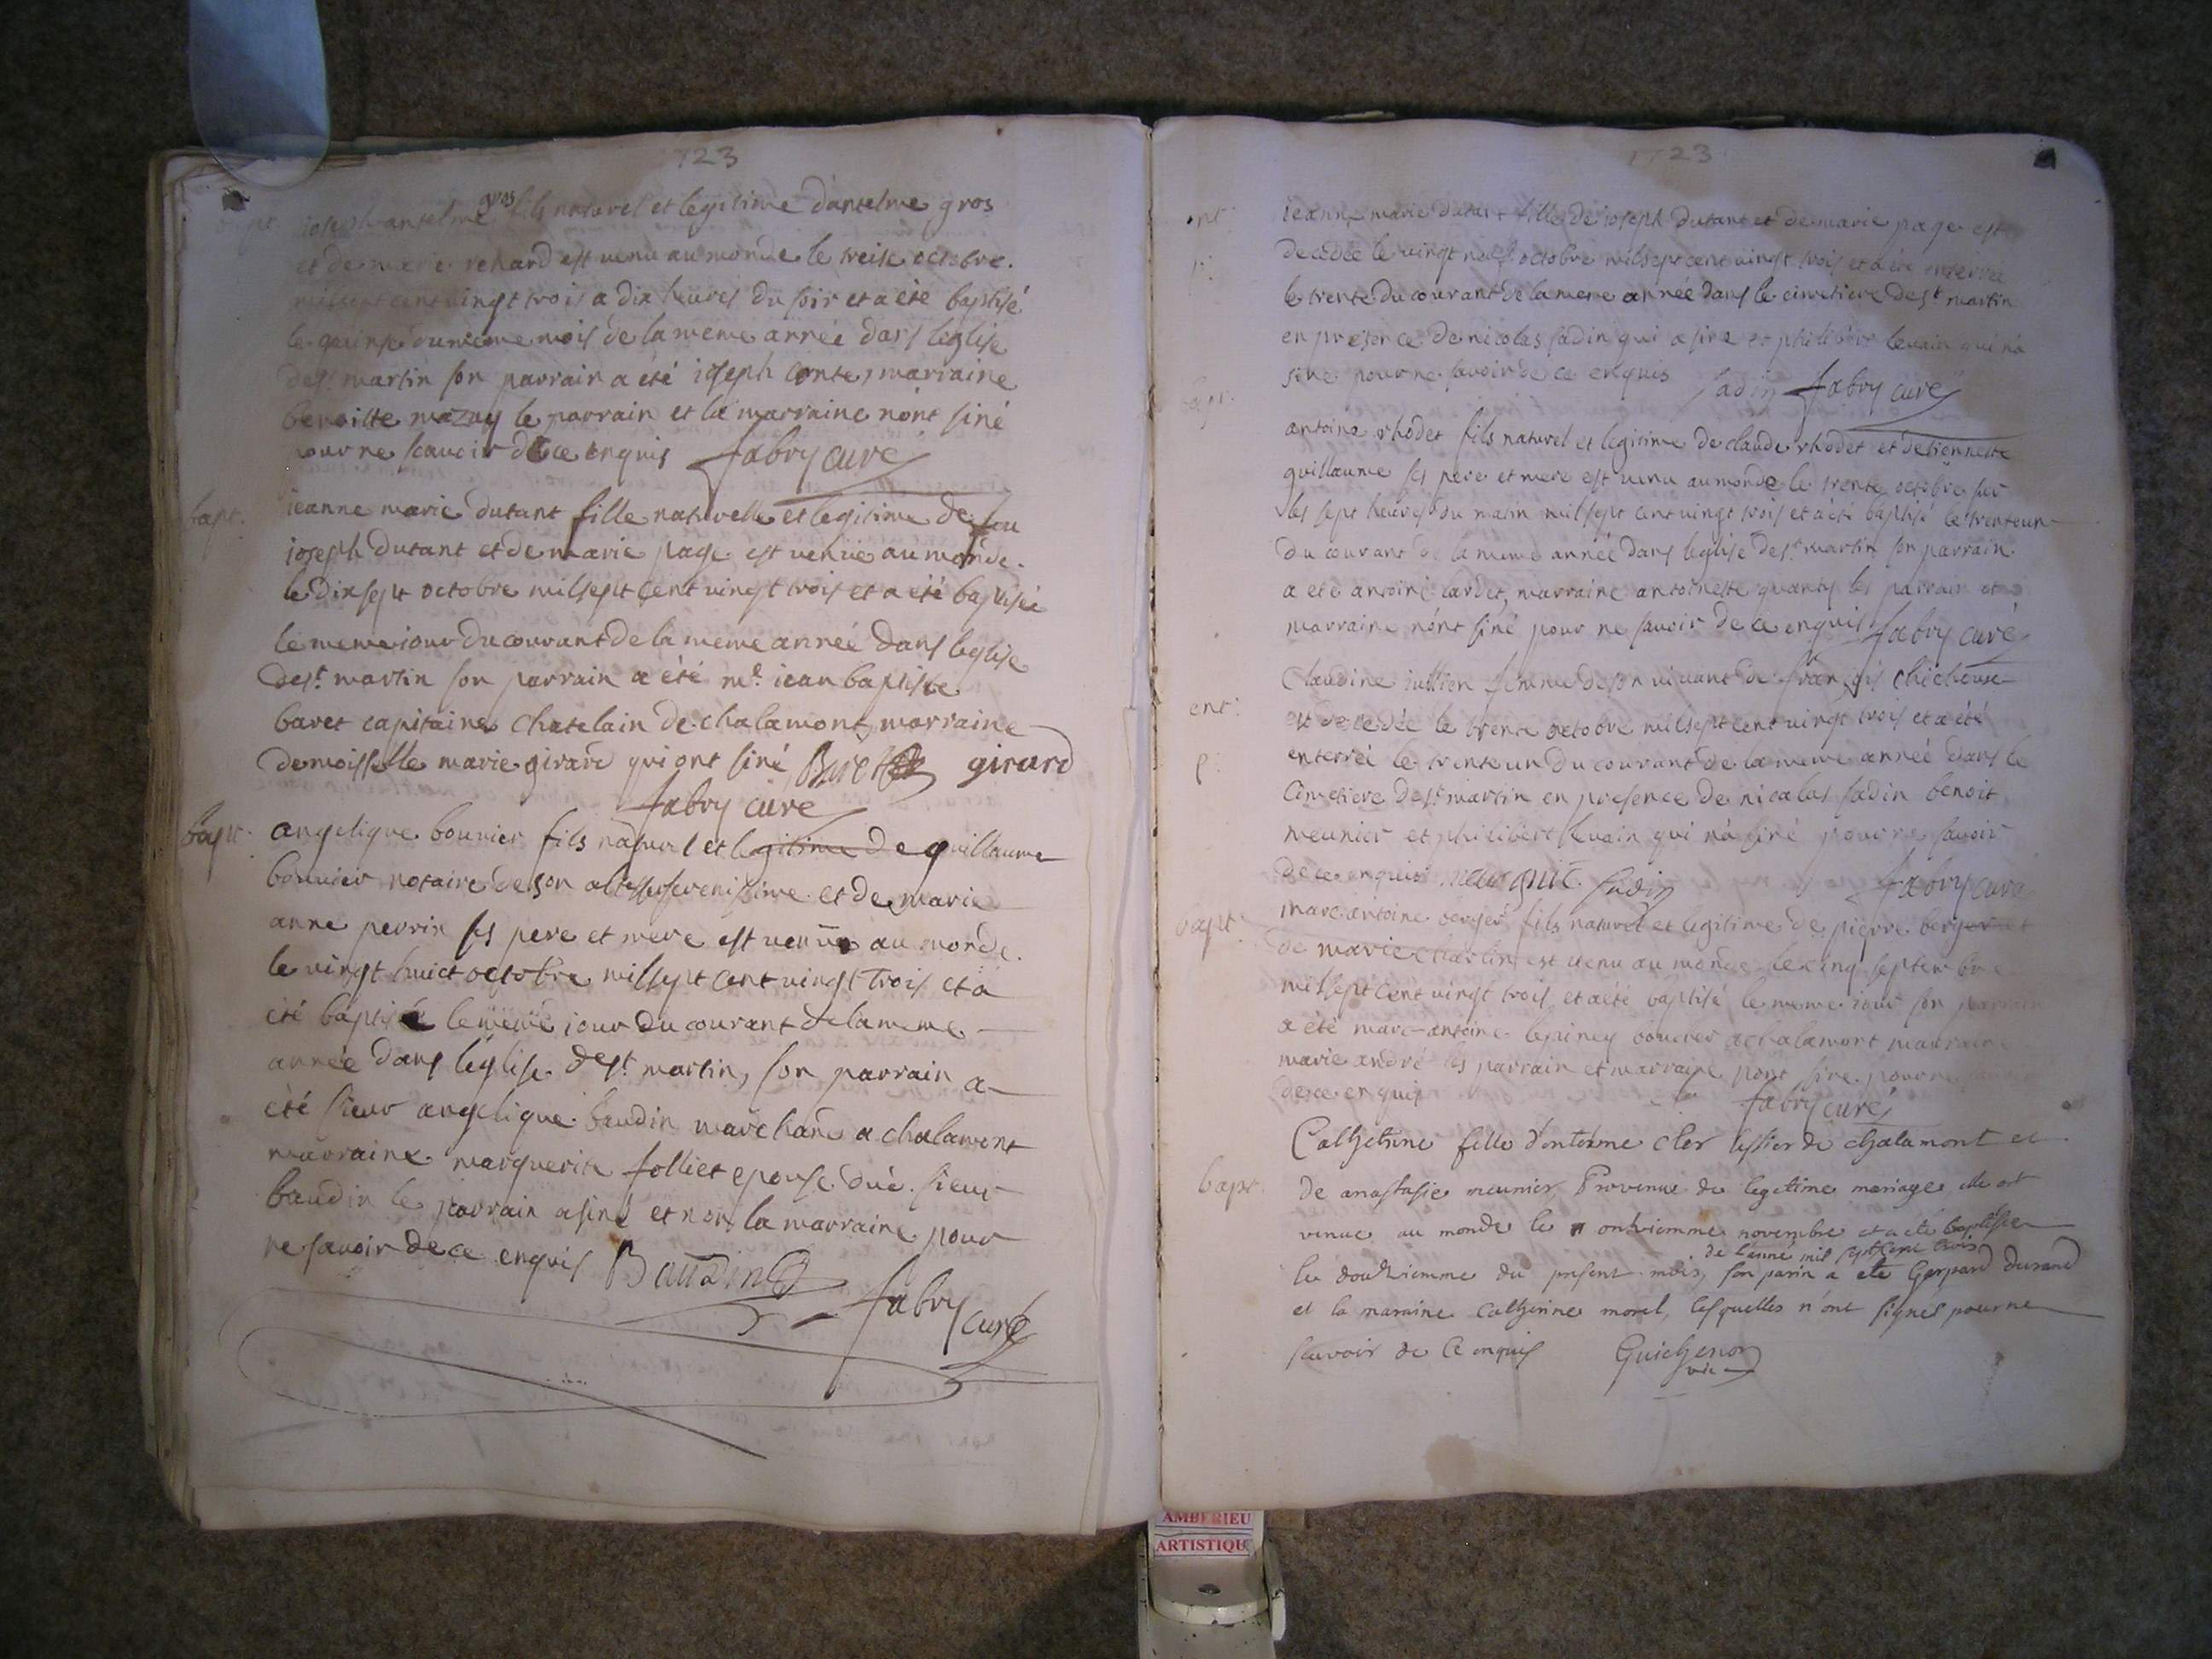 723
bapt. joseph anselme gros fils naturel et legitime d'anselme gros
et de marie renard est venu au monde le treise octobre
milsept cent vingt trois a dix heures du soir et a été baptisé
le quinse du meme mois de la meme année dans leglise
de st martin son parrain a été ioseph conte, marraine
benoitte mazuy le parrain et la marraine nónt siné
pour ne scavoir de ce enquis fabry curé
bapt. ieanne marie dutant fille naturelle et legitime de feu
ioseph dutant et de marie page est venüe au monde
le dix sept octobre milsept cent vingt trois et a été baptisée
le meme iour du courant de la meme année dans leglise
de st martin son parrain a été mr iean baptiste
baret capitaine chatelain de chalamont, marraine
demoisselle marie girard qui ont siné Baret girard
fabry curé
bapt. angelique bouvier fils naturel et legitime de guillaume
bouvier notaire de son altesse serenissime et de marie
anne perrin ses pere et mere est venu au monde
le vingt huict octobre milsept cent vingt trois et a
été baptisé le meme iour du courant de la meme
année dans l'église de st martin, son parrain a
été sieur angelique baudin marchand a chalamont
marraine marguerite folliet epouse dud. sieur
baudin le parrain a siné et non la marraine pour
ne savoir de ce enquis Baudin
fabry curé
1723
ent. ieanne marie dutant fille de ioseph dutant et de marie page est
decedée le vingt neuf octobre milsept cent vingt trois et a été enterrée
p. le trente du courant de la meme année dans le cimetiere de st martin
en presence de nicolas sadin qui a siné et philibert levain qui na
siné pour ne savoir de ce enquis sadin fabry curé
bapt. antoine rhodet fils naturel et legitime de claude rhodet et detiennette
guillaume ses pere et mere est venu au monde le trente octobre sur
les sept heures du matin milsept cent vingt trois et a été baptisé le trente un
du courant de la meme année dans leglise de st martin son parrain
a été antoine cardet, marraine antoinette quanty les parrain et
marraine nónt siné pour ne savoir de ce enquis fabry curé
claudine iullien femme de son vivant de françois chicheux
ent. est decedée le trente octobre milsept cent vingt trois et a été
enterrée le trente un du courant de la meme année dans le
p. cimetiere de st martin en presence de nicolas sadin benoit
meunier et philibert levain qui na siné pour ne savoir
de ce enquis meugnié sadin fabry curé
bapt. marc antoine berger fils naturel et legitime de pierre berger et
de marie charlin est venu au monde le cinq septembre
milsept cent vingt trois et a été baptisé le meme iour son parrain
a été marc antoine lepiney boucher a chalamont marraine
marie andré les parrain et marraine nont siné pour ne
de ce enquis fabry curé
Catherine fille d'antelme cler tissier de chalamont et
bapt. de anastasie meunier, Provenue de legitime mariage, elle est
venue au monde le onzieme novembre et a été baptisée
de l'anné mil sept cent trois
le douzieme du present mois, son parin a eté Gaspard Durand
et la maraine catherine morel, lesquelles n'ont signes pour ne
scavoir de ce enquis Guichenon
vic
AMBERIEU
ARTISTIQU